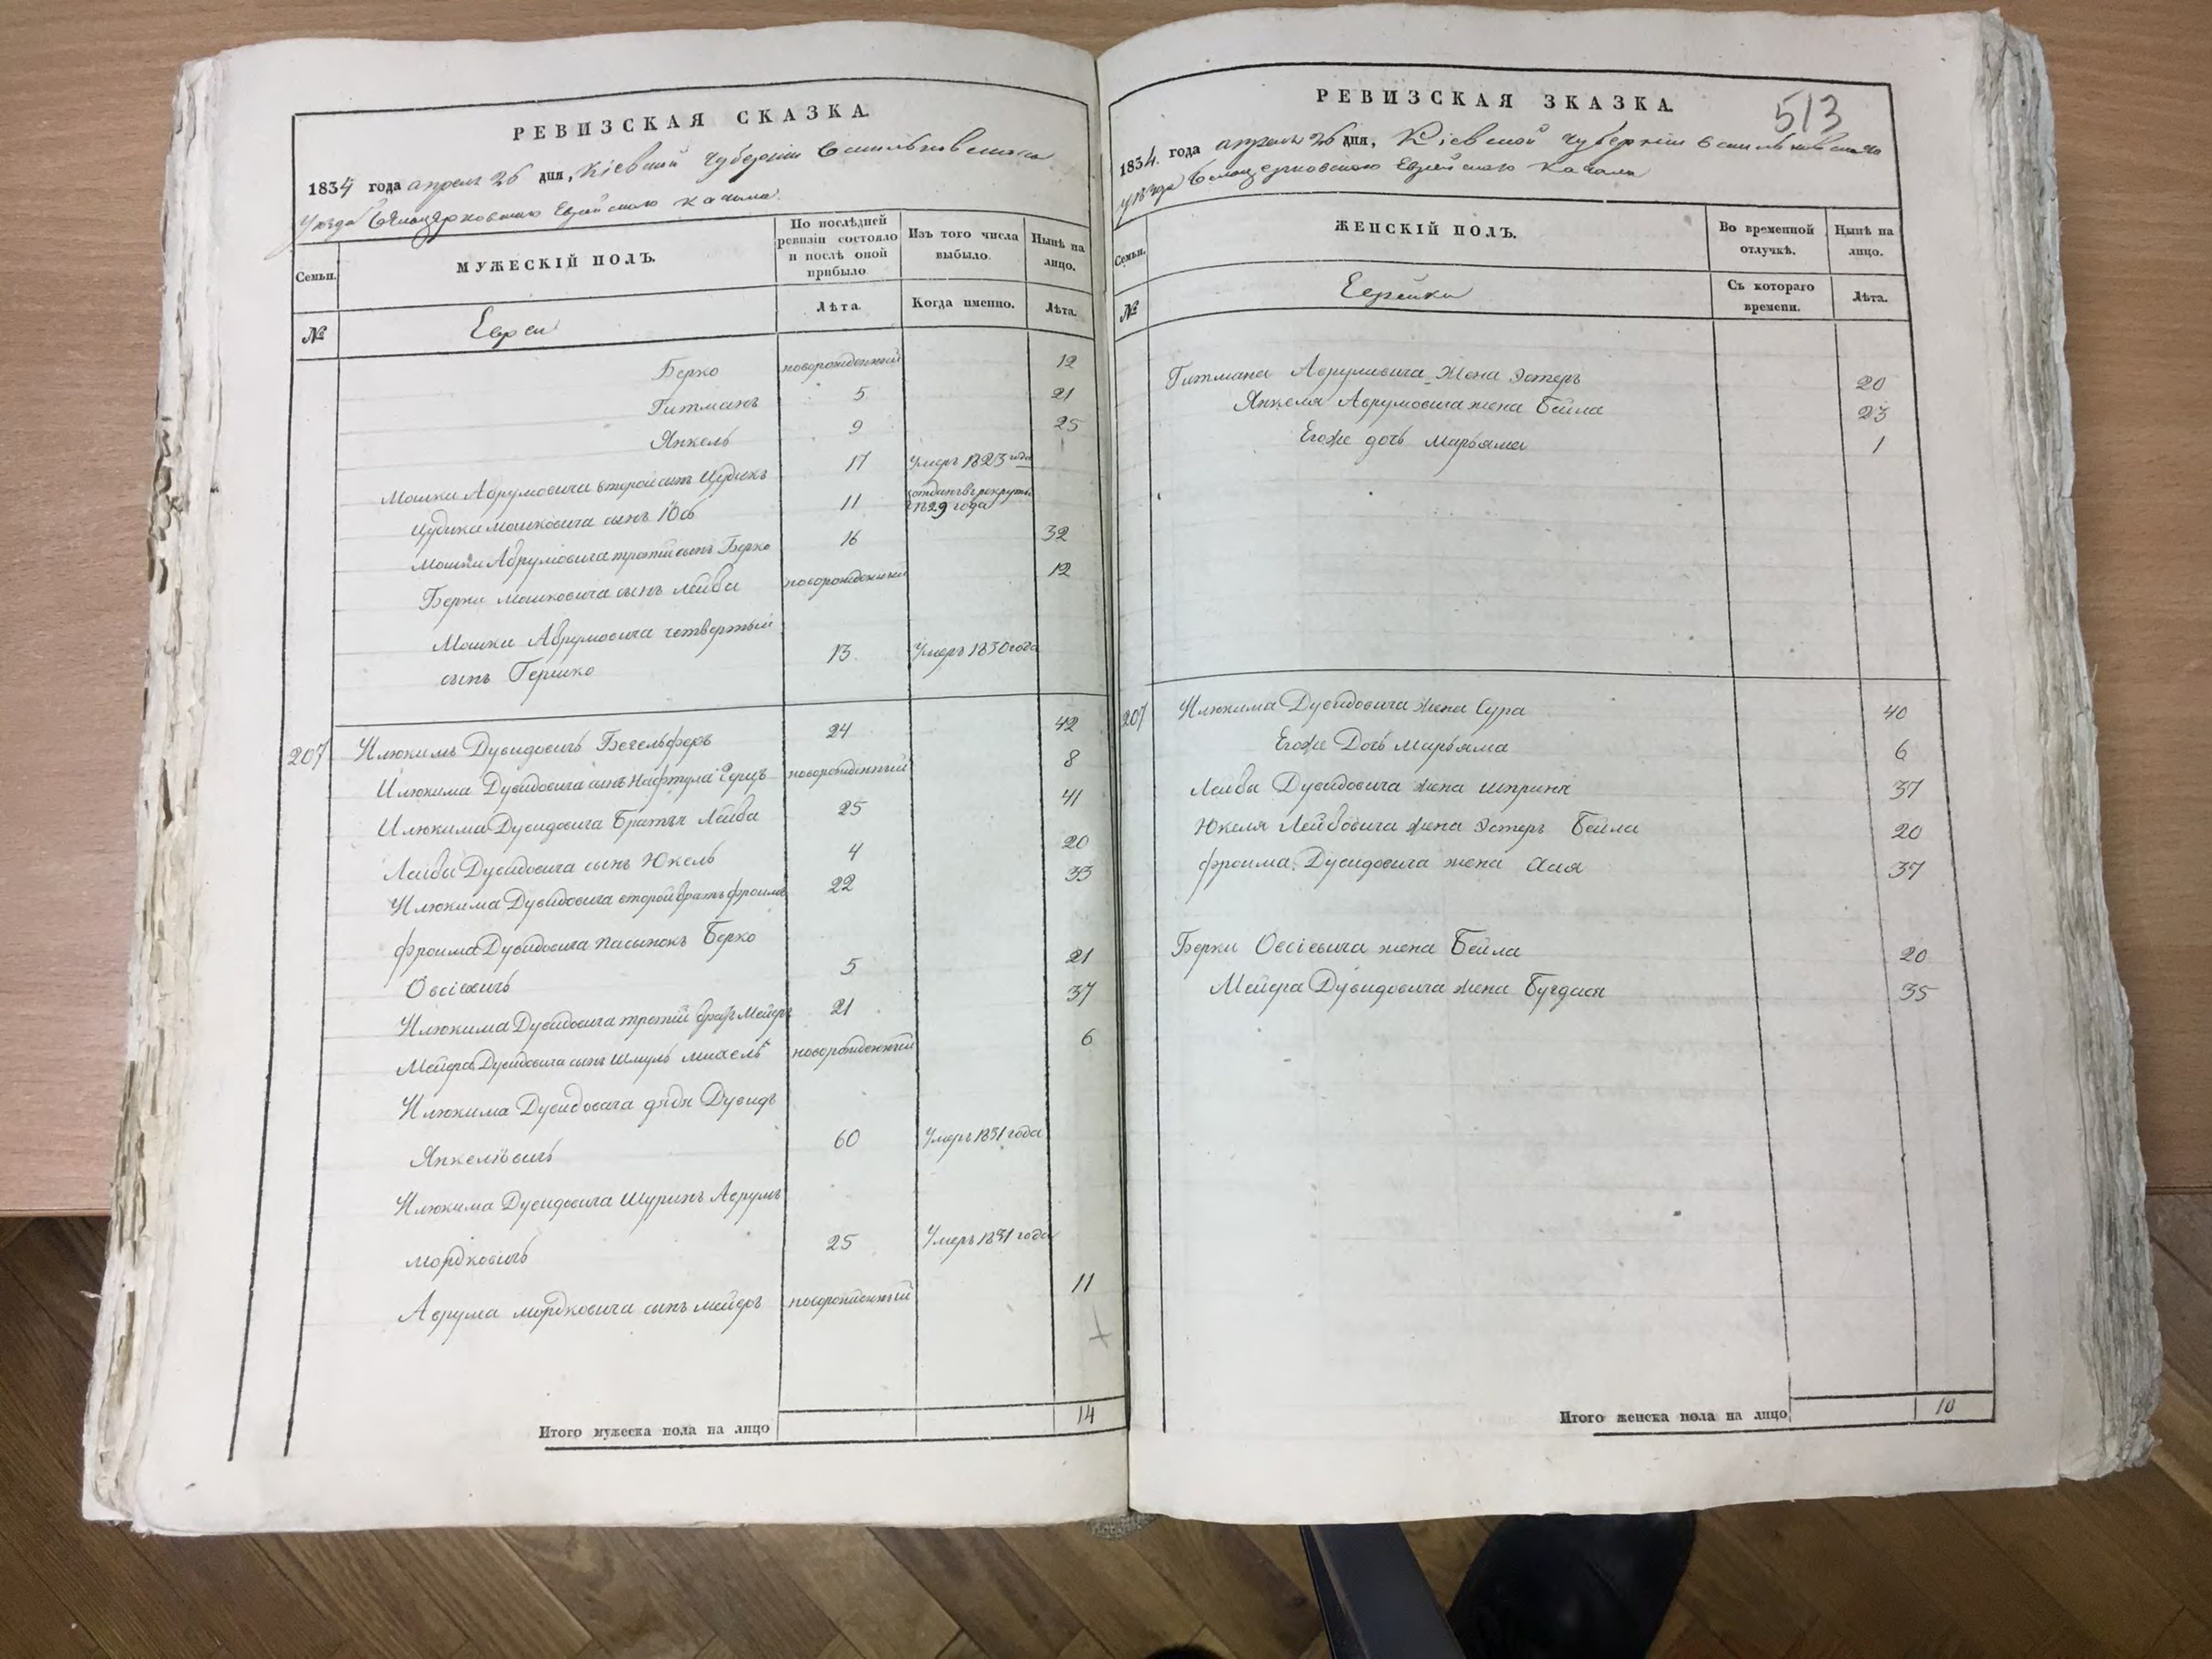 РЕВИЗСКАЯ СКАЗКА.
1834 года апреля 26 дня, Кіевской Губерніи Васильковскаго
Уезда Белоцерковскаго Еврейскаго Кагала.
Семьи.
МУЖЕСКІЙ ПОЛЪ.
По послѣдней ревизіи состояло и послѣ оной прибыло
Изъ того числа выбыло.
Нынѣ на лицо.
№
Евреи
Лѣта.
Когда именно.
Лѣта.
Берко новорожденный 12
Гитманъ 5 21
Янкель 9 25
Мошки Аврумовича второй сынъ Цудикъ 17 Умеръ 1823 года
Цудика Мошковича сынъ Іосъ 11 отданъ в рекруты 1829 года
Мошки Аврумовича третій сынъ Берко 16 32
Берки Мошковича сынъ Лейба новорожденный 12
Мошки Аврумовича четвертый
сынъ Гершко 13 Умеръ 1830 года
207 Илюкимъ Дувидовичъ Бегельферъ 24 42
Илюкима Дувидовича сынъ Нафтула Герцъ новорожденный 8
Илюкима Дувидовича Братъ Лейба 25 41
Лейбы Дувидовича сынъ Юкель 4 20
Илюкима Дувидовича второй братъ Фроимъ 22 33
Фроима Дувидовича пасынокъ Берко
Овсіевичъ 5 21
Илюкима Дувидовича третій братъ Мейеръ 21 37
Мейера Дувидовича сынъ Шмуль Михель новорожденный 6
Илюкима Дувидовича дядя Дувидъ
Янкелювичъ 60 Умеръ 1831 года
Илюкима Дувидовича Шуринъ Аврумъ
Мордковичъ 25 Умеръ 1831 года
Аврума Мордковича сынъ Мейеръ новорожденный 11
Итого мужеска пола на лицо 14
513
РЕВИЗСКАЯ ЗКАЗКА.
1834. года апреля 26 дня, Кіевской Губерніи Васильковскаго
уѣзда Белоцерковскаго Еврейскаго Кагала
Семьи.
ЖЕНСКІЙ ПОЛЪ.
Во временной отлучкѣ.
Нынѣ на лицо.
№
Еврейки
Съ котораго времени.
Лѣта.
Гитмана Аврумовича жена Эстеръ 20
Янкеля Аврумовича жена Бейла 23
Егоже дочь Марьяма 1
207 Илюкима Дувидовича жена Сура 40
Егоже Дочь Марьяма 6
Лейбы Дувидовича жена Шприня 37
Юкеля Лейбовича жена Эстеръ Бейла 20
Фроима Дувидовича жена Ася 37
Берки Овсіевича жена Бейла 20
Мейера Дувидовича жена 35
Итого женска пола на лицо 10